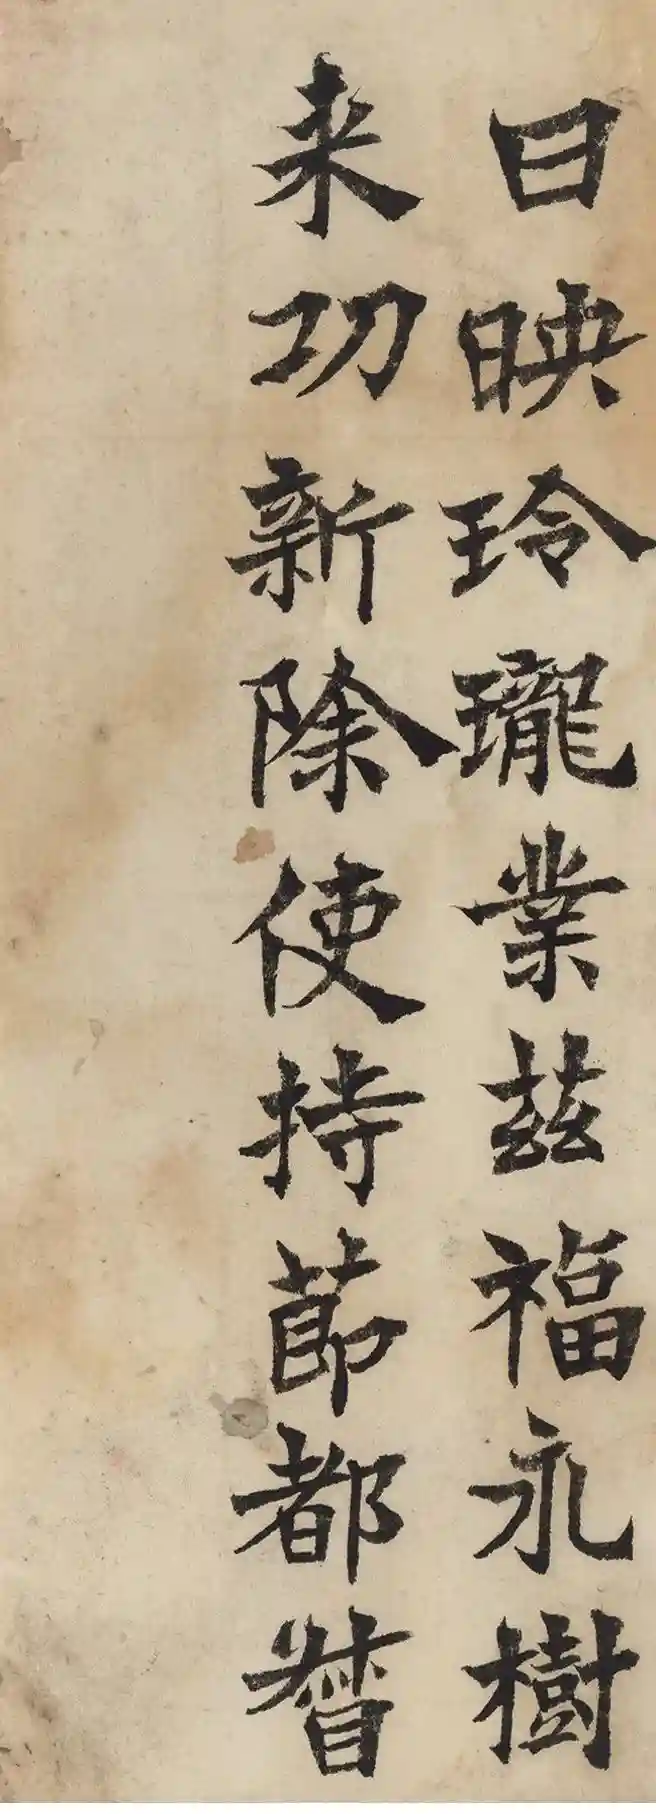 日映玲瓏業茲福永樹
来功新除使持節都督